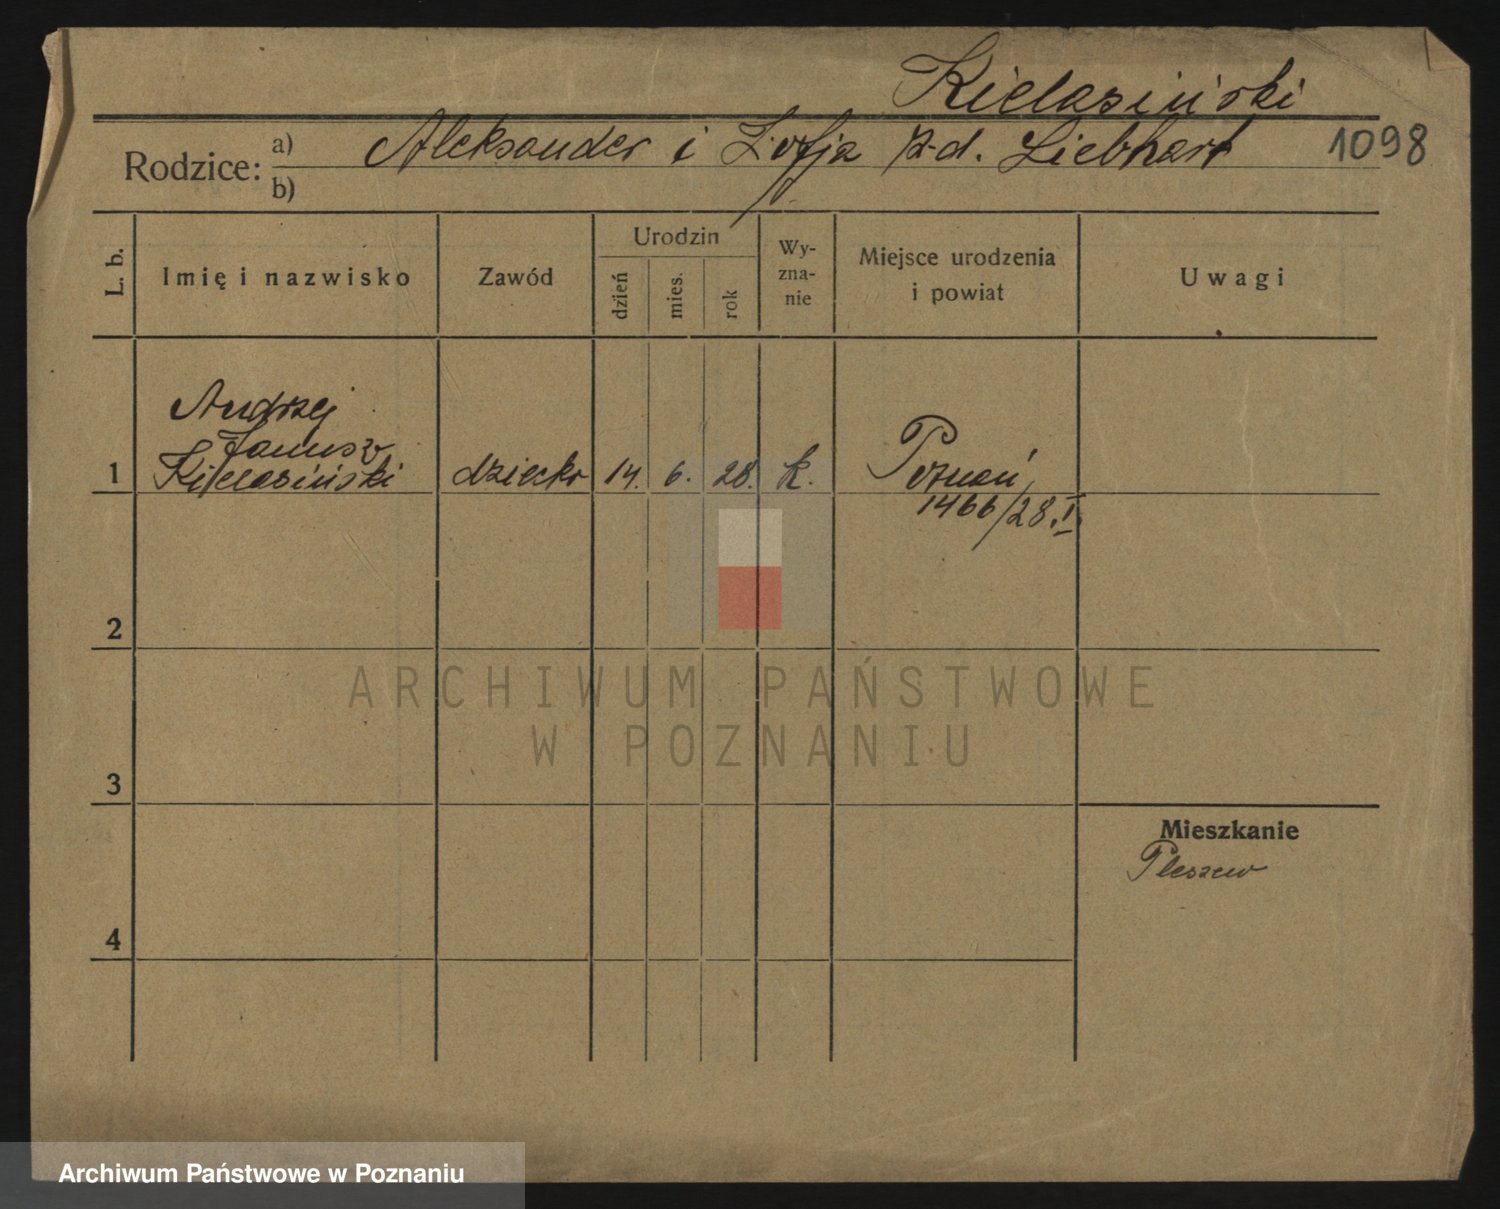 Kielasiński
Rodzice: a) Aleksander i Zofja z d. Liebhart 1098
b)
L. b. Imię i nazwisko Zawód Urodzin dzień mies. rok Wy-zna-nie Miejsce urodzenia i powiat Uwagi
Andrzej
Janusz
1 Kielasiński dziecko 14. 6. 28. k. Poznań
1466/28. I.
2
ARCHIWUM PAŃSTWOWE
W POZNANIU
3
Mieszkanie
Pleszew
4
Archiwum Państwowe w Poznaniu